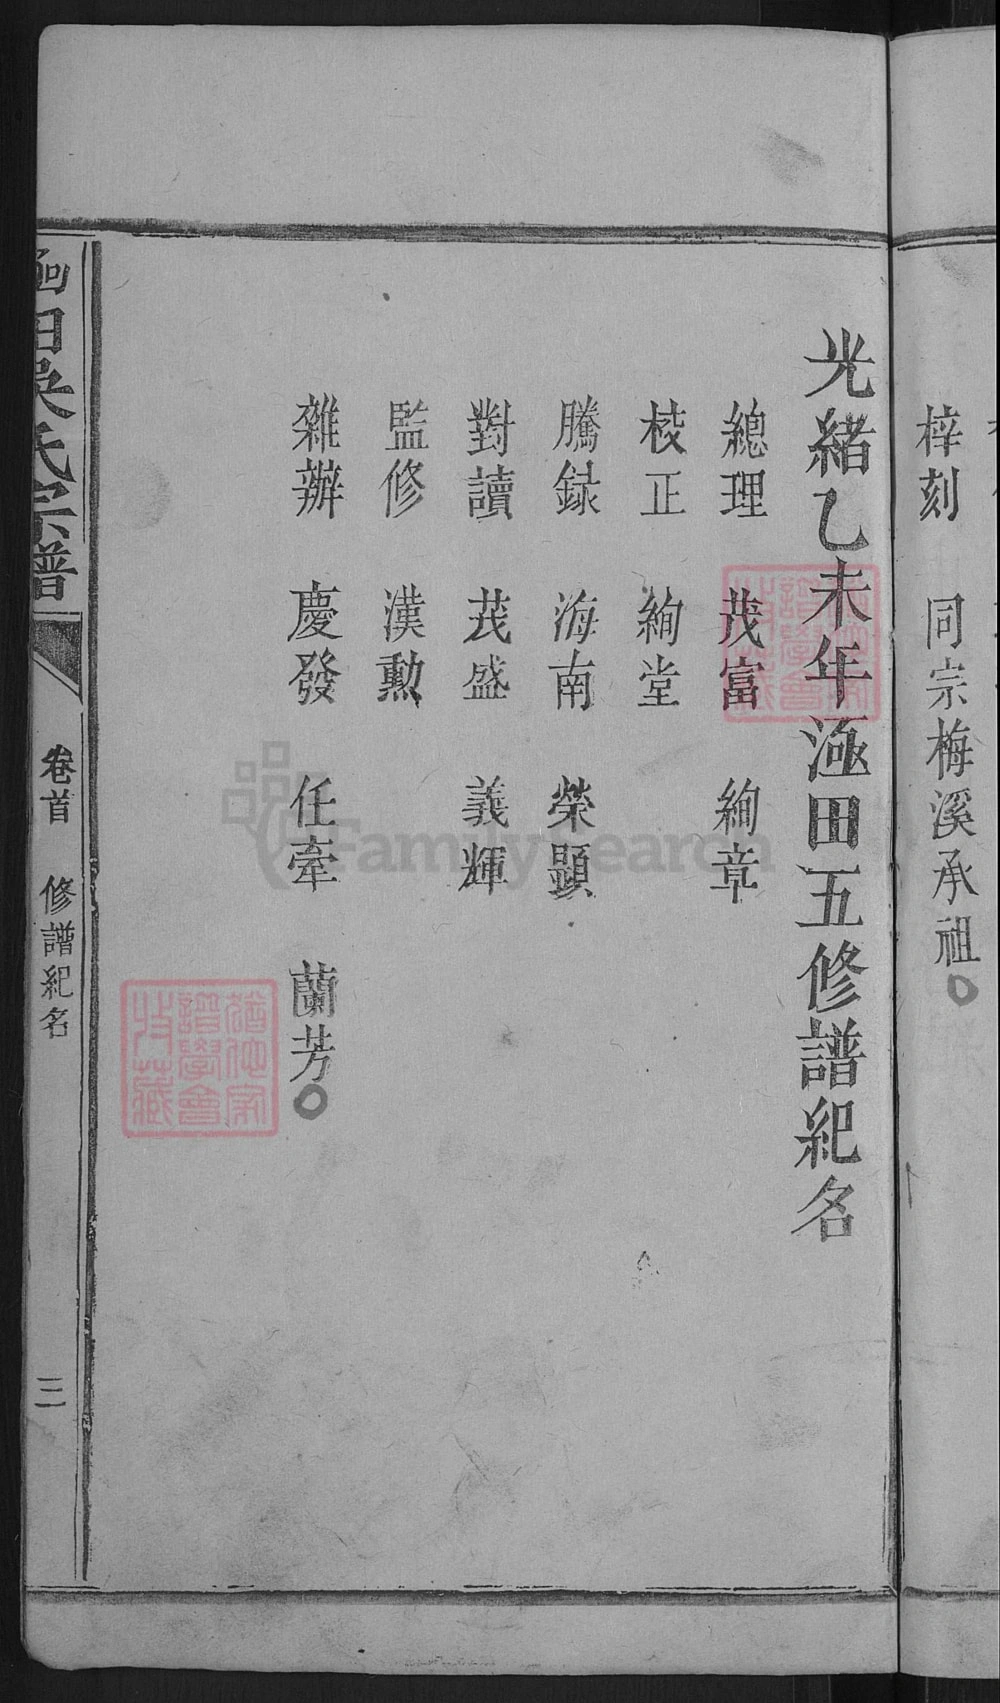 梓刻 同宗梅溪承祖
光緒乙未年渱田五修譜紀名
總理 茂富 絢章
校正 絢堂
騰録 海南 榮顕
對讀 茂盛 義輝
監修 漢勲
雜辦 慶發 任牽 蘭芳
田吳氏宗譜
卷首 修譜紀名
三
譜學會
收藏
FamilySearch